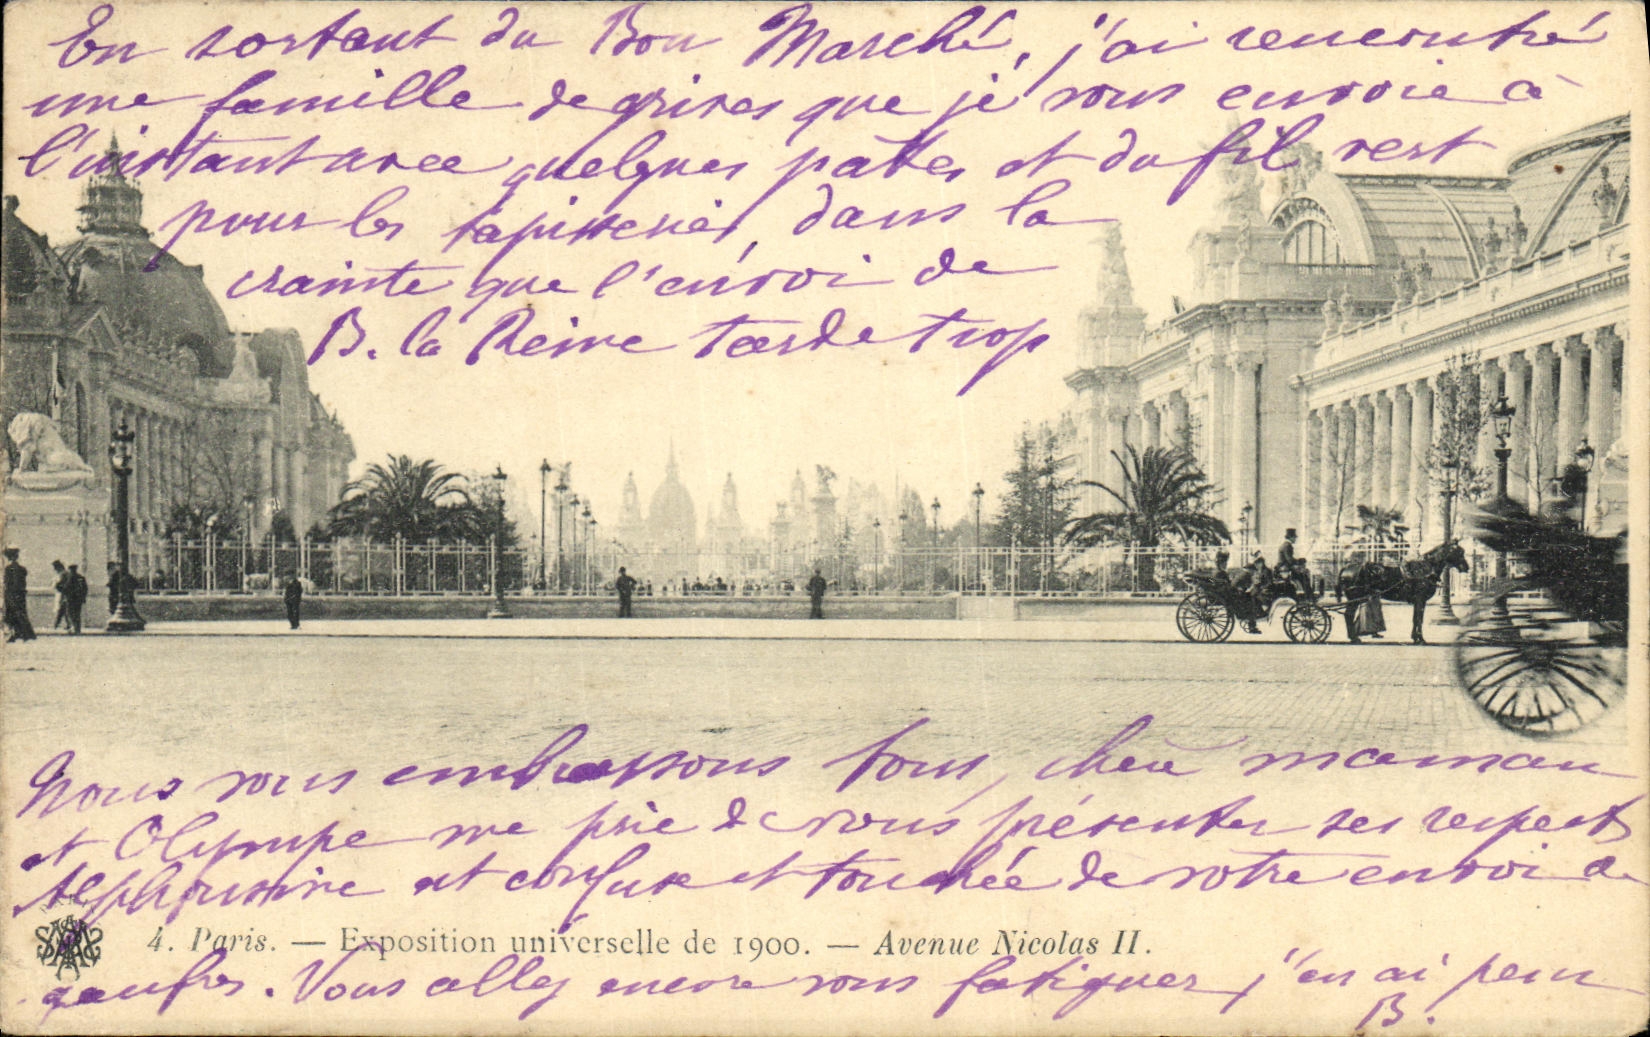 En sortant du Bon Marché, j'ai rencontré
une famille de grives que je vous envoie à
l'instant avec quelques pattes et du fil vert
pour les tapisseries, dans la
crainte que l'envoi de
B. la Reine tarde trop
Nous vous embrassons tous, chère maman
et Olympe me prie de vous présenter ses respects
Alphonsine est confuse et touchée de votre envoi de
4. Paris. — Exposition universelle de 1900. — Avenue Nicolas II.
gaufres. Vous allez encore vous fatiguer, j'en ai peur
B.